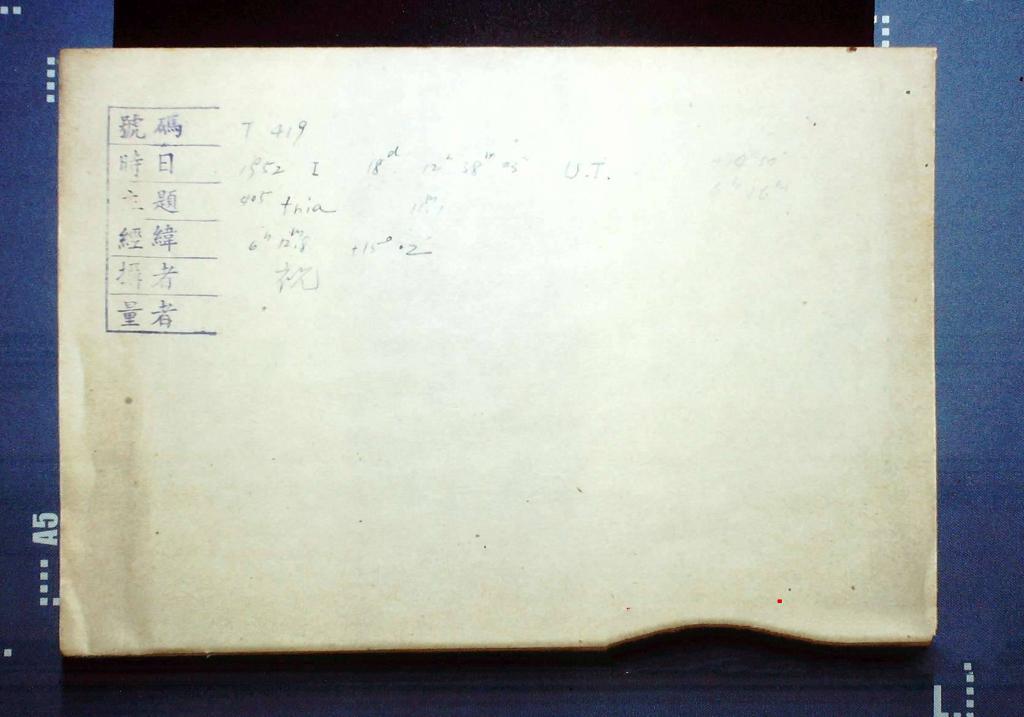 號碼 T 419
時日 1952 I 18d 12h 38m 05s U.T.
主題 405 thia
經緯 6h 12m.8 +15° .2
攝者 祝
量者
A5